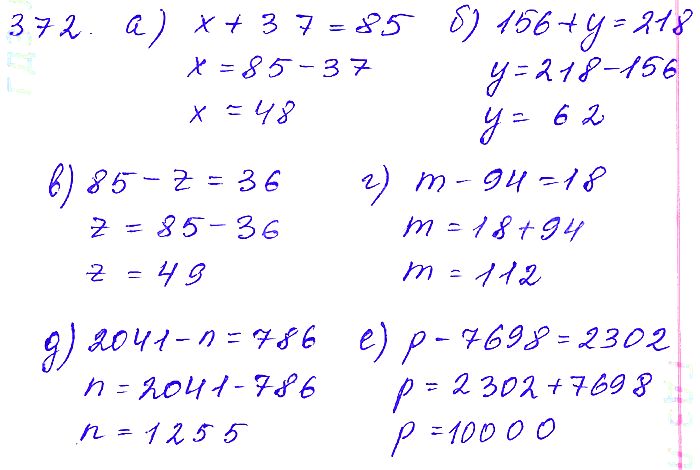 372. а) x + 37 = 85 б) 156 + y = 218
x = 85 - 37 y = 218 - 156
x = 48 y = 62
в) 85 - z = 36 г) m - 94 = 18
z = 85 - 36 m = 18 + 94
z = 49 m = 112
д) 2041 - n = 786 е) p - 7698 = 2302
n = 2041 - 786 p = 2302 + 7698
n = 1255 p = 10000